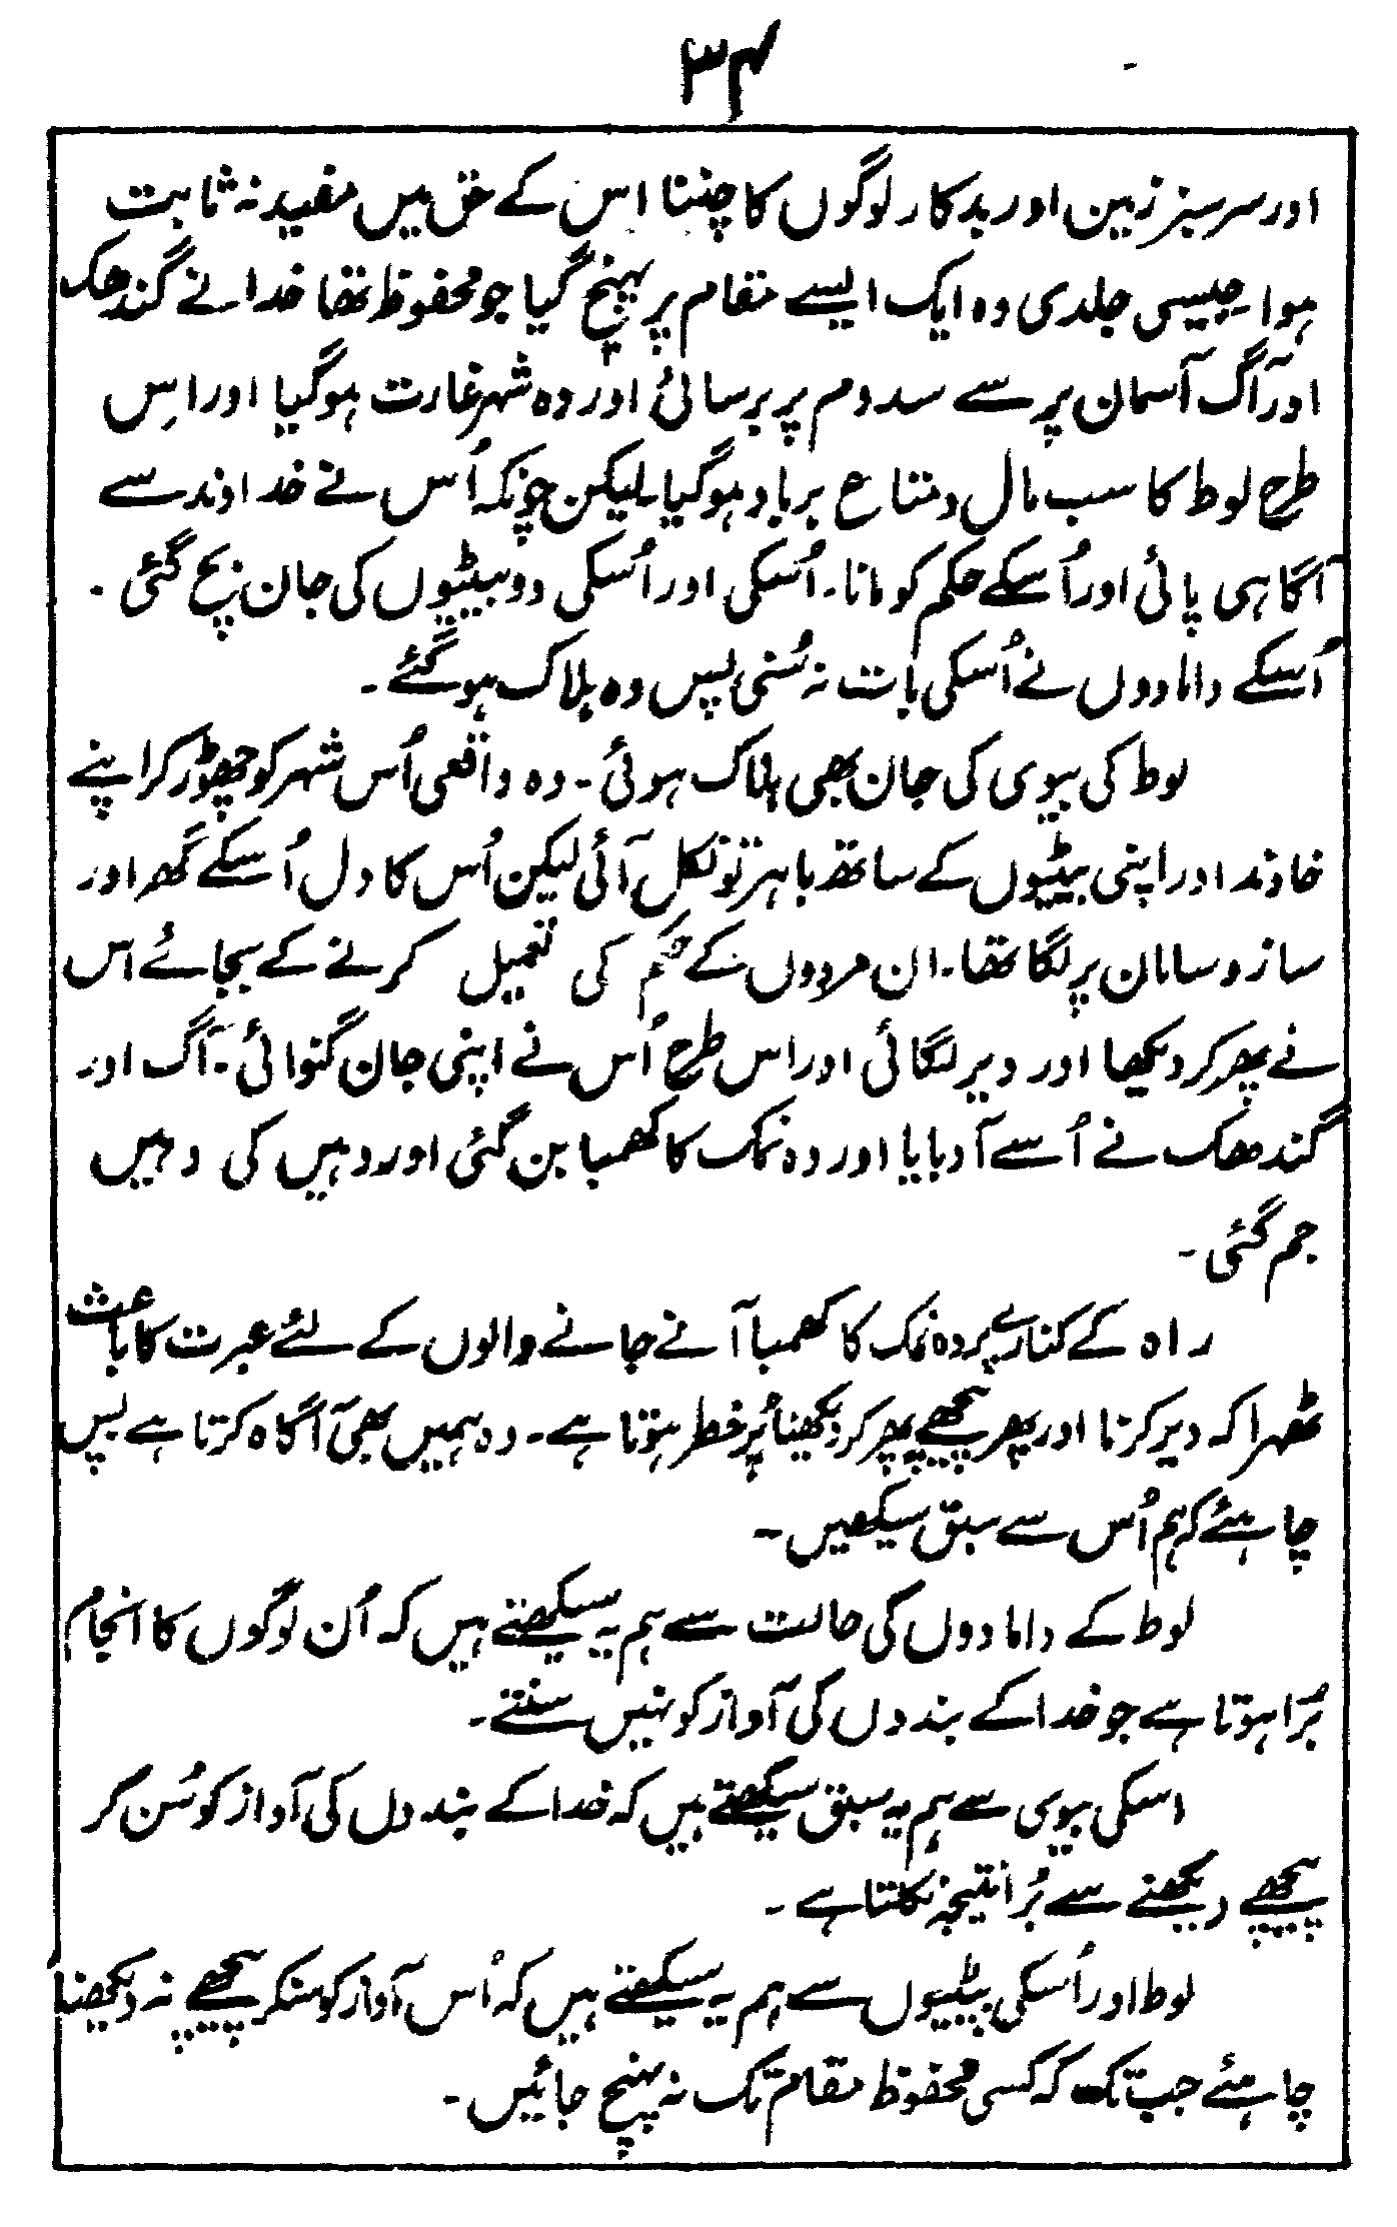 ۳۴
اور سرسبز زمین اور بدکار لوگوں کا چننا اس کے حق میں مفید نہ ثابت
ہوا جیسی جلدی وہ ایک ایسے مقام پر پہنچ گیا جو محفوظ تھا خدا نے گندھک
اور آگ آسمان پر سے سدوم پر برسائی اور وہ شہر غارت ہو گیا اور اِس
طرح لوط کا سب مال و متاع برباد ہو گیا۔ لیکن چونکہ اُس نے خداوند سے
آگاہی پائی اور اُسکے حکم کو مانا۔ اُسکی اور اُسکی دو بیٹیوں کی جان بچ گئی۔
اُسکے دامادوں نے اُسکی بات نہ سُنی پس وہ ہلاک ہو گئے۔
لوط کی بیوی کی جان بھی ہلاک ہوئی۔ وہ واقعی اُس شہر کو چھوڑ کر اپنے
خاوند اور اپنی بیٹیوں کے ساتھ باہر تو نکل آئی لیکن اُس کا دل اُسکے گھر اور
ساز و سامان پر لگا تھا۔ ان مردوں کے حکم کی تعمیل کرنے کے بجائے اُس
نے پھر کر دیکھا اور دیر لگائی اور اس طرح اُس نے اپنی جان گنوائی۔ آگ اور
گندھک نے اُسے آ دبایا اور وہ نمک کا کھمبا بن گئی اور وہیں کی وہیں
جم گئی۔
راہ کے کنارے پر وہ نمک کا کھمبا آنے جانے والوں کے لئے عبرت کا باعث
ٹھہرا کہ دیر کرنا اور پھر پیچھے پھر کر دیکھنا پُر خطر ہوتا ہے۔ وہ ہمیں بھی آگاہ کرتا ہے پس
چاہئے کہ ہم اُس سے سبق سیکھیں۔
لوط کے دامادوں کی حالت سے ہم یہ سیکھتے ہیں کہ اُن لوگوں کا انجام
بُرا ہوتا ہے جو خدا کے بندوں کی آواز کو نہیں سنتے۔
اسکی بیوی سے ہم یہ سبق سیکھتے ہیں کہ خدا کے بندوں کی آواز کو سُن کر
پیچھے دیکھنے سے بُرا نتیجہ نکلتا ہے۔
لوط اور اُسکی بیٹیوں سے ہم یہ سیکھتے ہیں کہ اُس آواز کو سنکر پیچھے نہ دیکھنا
چاہئے جب تک کہ کسی محفوظ مقام تک نہ پہنچ جائیں۔